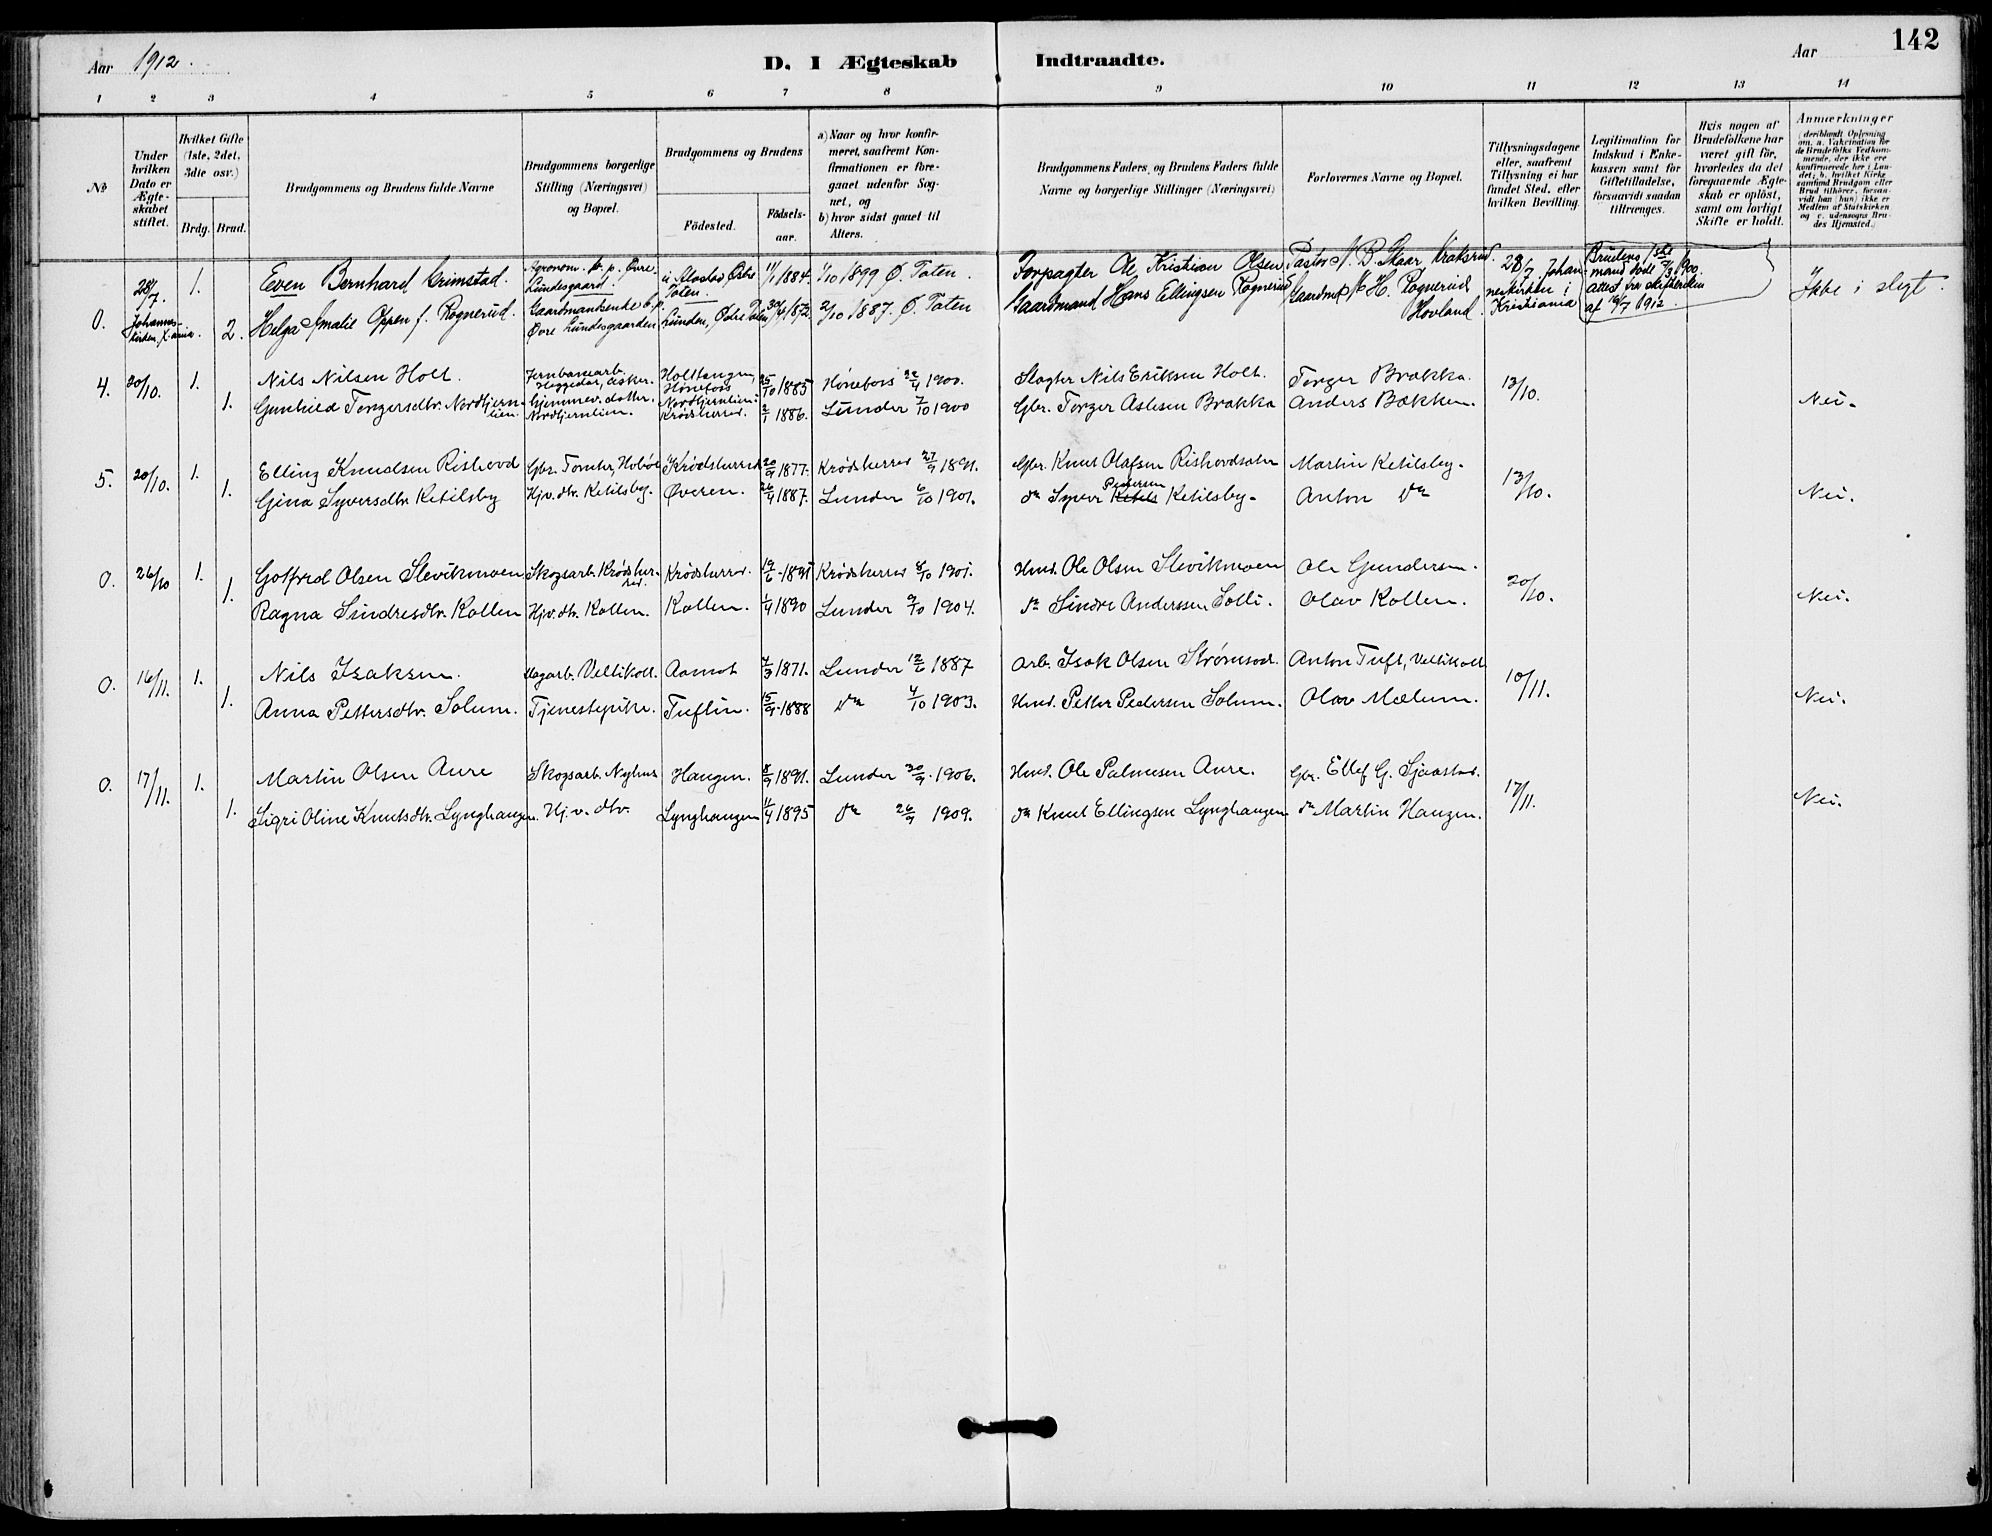 142
Aar 1912.
D. I Ægteskab Indtraadte.
Aar
1 2 3 4 5 6 7 8 9 10 11 12 13 14
№
Under hvilken Dato er Ægteskabet stiftet.
Hvilket Gifte (1ste, 2det, 3die osv.)
Brdg. Brud.
Brudgommens og Brudens fulde Navne
Brudgommens borgerlige Stilling (Næringsvei) og Bopæl.
Brudgommens og Brudens
Födested.
Födsels-aar.
a) Naar og hvor konfirmeret, saafremt Konfirmationen er foregaaet udenfor Sognet, og
b) hvor sidst gaaet til Alters.
Brudgommens Faders, og Brudens Faders fulde Navne og borgerlige Stillinger (Næringsvei)
Forlovernes Navne og Bopæl.
Tillysningsdagene eller, saafremt Tillysning ei har fundet Sted, efter hvilken Bevilling.
Legitimation for Indskud i Enkekassen samt for Giftetilladelse, forsaavidt saadan tiltrænges.
Hvis nogen af Brudefolkene har været gift för, hvorledes da det foregaaende Ægteskab er oplöst, samt om lovligt Skifte er holdt.
Anmærkninger
(deriblandt Oplysning om, a. Vakcination for de Brudefolks Vedkommende, der ikke ere konfirmerede her i Landet; b. hvilket Kirkesamfund Brudgom eller Brud tilhører, forsaavidt han (hun) ikke er Medlem af Statskirken og c. udensogns Brudes Hjemsted.)
0. 28/7. Johannes-kirken, X.ania. 1. Even Bernhard Grimstad. Agronom. Øvre Lundesgaard. Østre Toten. 11/1 1884. 1/10 1899 Ø. Toten. Forpagter Ole Kristian Olsen Pastor N. B. Skaar 28/7 Johanneskirken i Kristiania Brudens 1ste mand døde 7/3 1900. Attest fra skifteretten af 16/7 1912. Ikke i slegt.
2. Helga Amalie Oppen f. Rognerud. Gaardmandsenke Øvre Lundesgaarden Lunden, Østre Toten 30/4 1872. 2/10 1887. Ø. Toten Gaardmand Hans Ellingsen Rognerud Gaardm. H. Rognerud Hovland.
4. 20/10. 1. Nils Nilsen Holt. Jernbanearb. Heggedal, Asker. Holttangen, Hønefoss 25/10 1885 Hønefoss 22/4 1900. Slagter Nils Eriksen Holt. Torger Brakka. 13/10.
1. Gunhild Torgersdtr. Nordtjernlien Hjemmev. datter. Nordtjernlien. Nordtjernlien. Krødsherred. 2/1 1886. Lunder 7/10 1900 Gbr. Torger Aslesen Brakka Anders Bækken. Nei.
5. 20/10. 1. Elling Knudsen Rishovd Gbr. Tomter, Hobøl Krødsherred 20/9 1877. Krødsherred 27/9 1891. Gbr. Knut Olafsen Rishovdsæter Martin Ketilsby. 13/10.
1. Gina Syversdtr. Ketilsby Hjv. dtr. Ketilsby. Øveren. 26/4 1887. Lunder 6/10 1901. do Syver Pedersen Ketils Ketilsby. Anton do Nei.
0. 26/10 1. Gotfred Olsen Slevikmoen Skogsarb. Krødsherred Krødsherred. 19/6 1891 Krødsherred 8/10 1901. Hmd. Ole Olsen Slevikmoen Ole Gundersen. 20/10.
1. Ragna Sindresdtr. Kollen Hjv. dtr. Kollen. Kollen. 1/4 1890 Lunder 9/10 1904. do Sindre Anderssen Solli. Olav Kollen. Nei.
0. 16/11. 1. Nils Isaksen. Dagarb. Vellikoll. Aamot 4/3 1871. Lunder 12/6 1887 Arb. Isak Olsen Strømsod. Anton Tuft, Vellikoll 10/11.
1. Anna Pettersdtr. Solum. Tjenestepike. Tuftin. 15/9 1888 do 4/10 1903. Hmd. Petter Pedersen Solum. Olav Mælum. Nei.
0. 17/11. 1. Martin Olsen Aure Skogsarb. Nyhus Haugen. 8/9 1891. Lunder 30/9 1906. Hmd. Ole Palmesen Aure. Gbr. Ellef G. Sjaastad. 17/11.
1. Sigri Oline Knutsdtr. Lynghaugen. Hj. v. dtr. Lynghaugen 11/4 1895 do 26/9 1909. do Knut Ellingsen Lynghaugen do Martin Haugen. Nei.